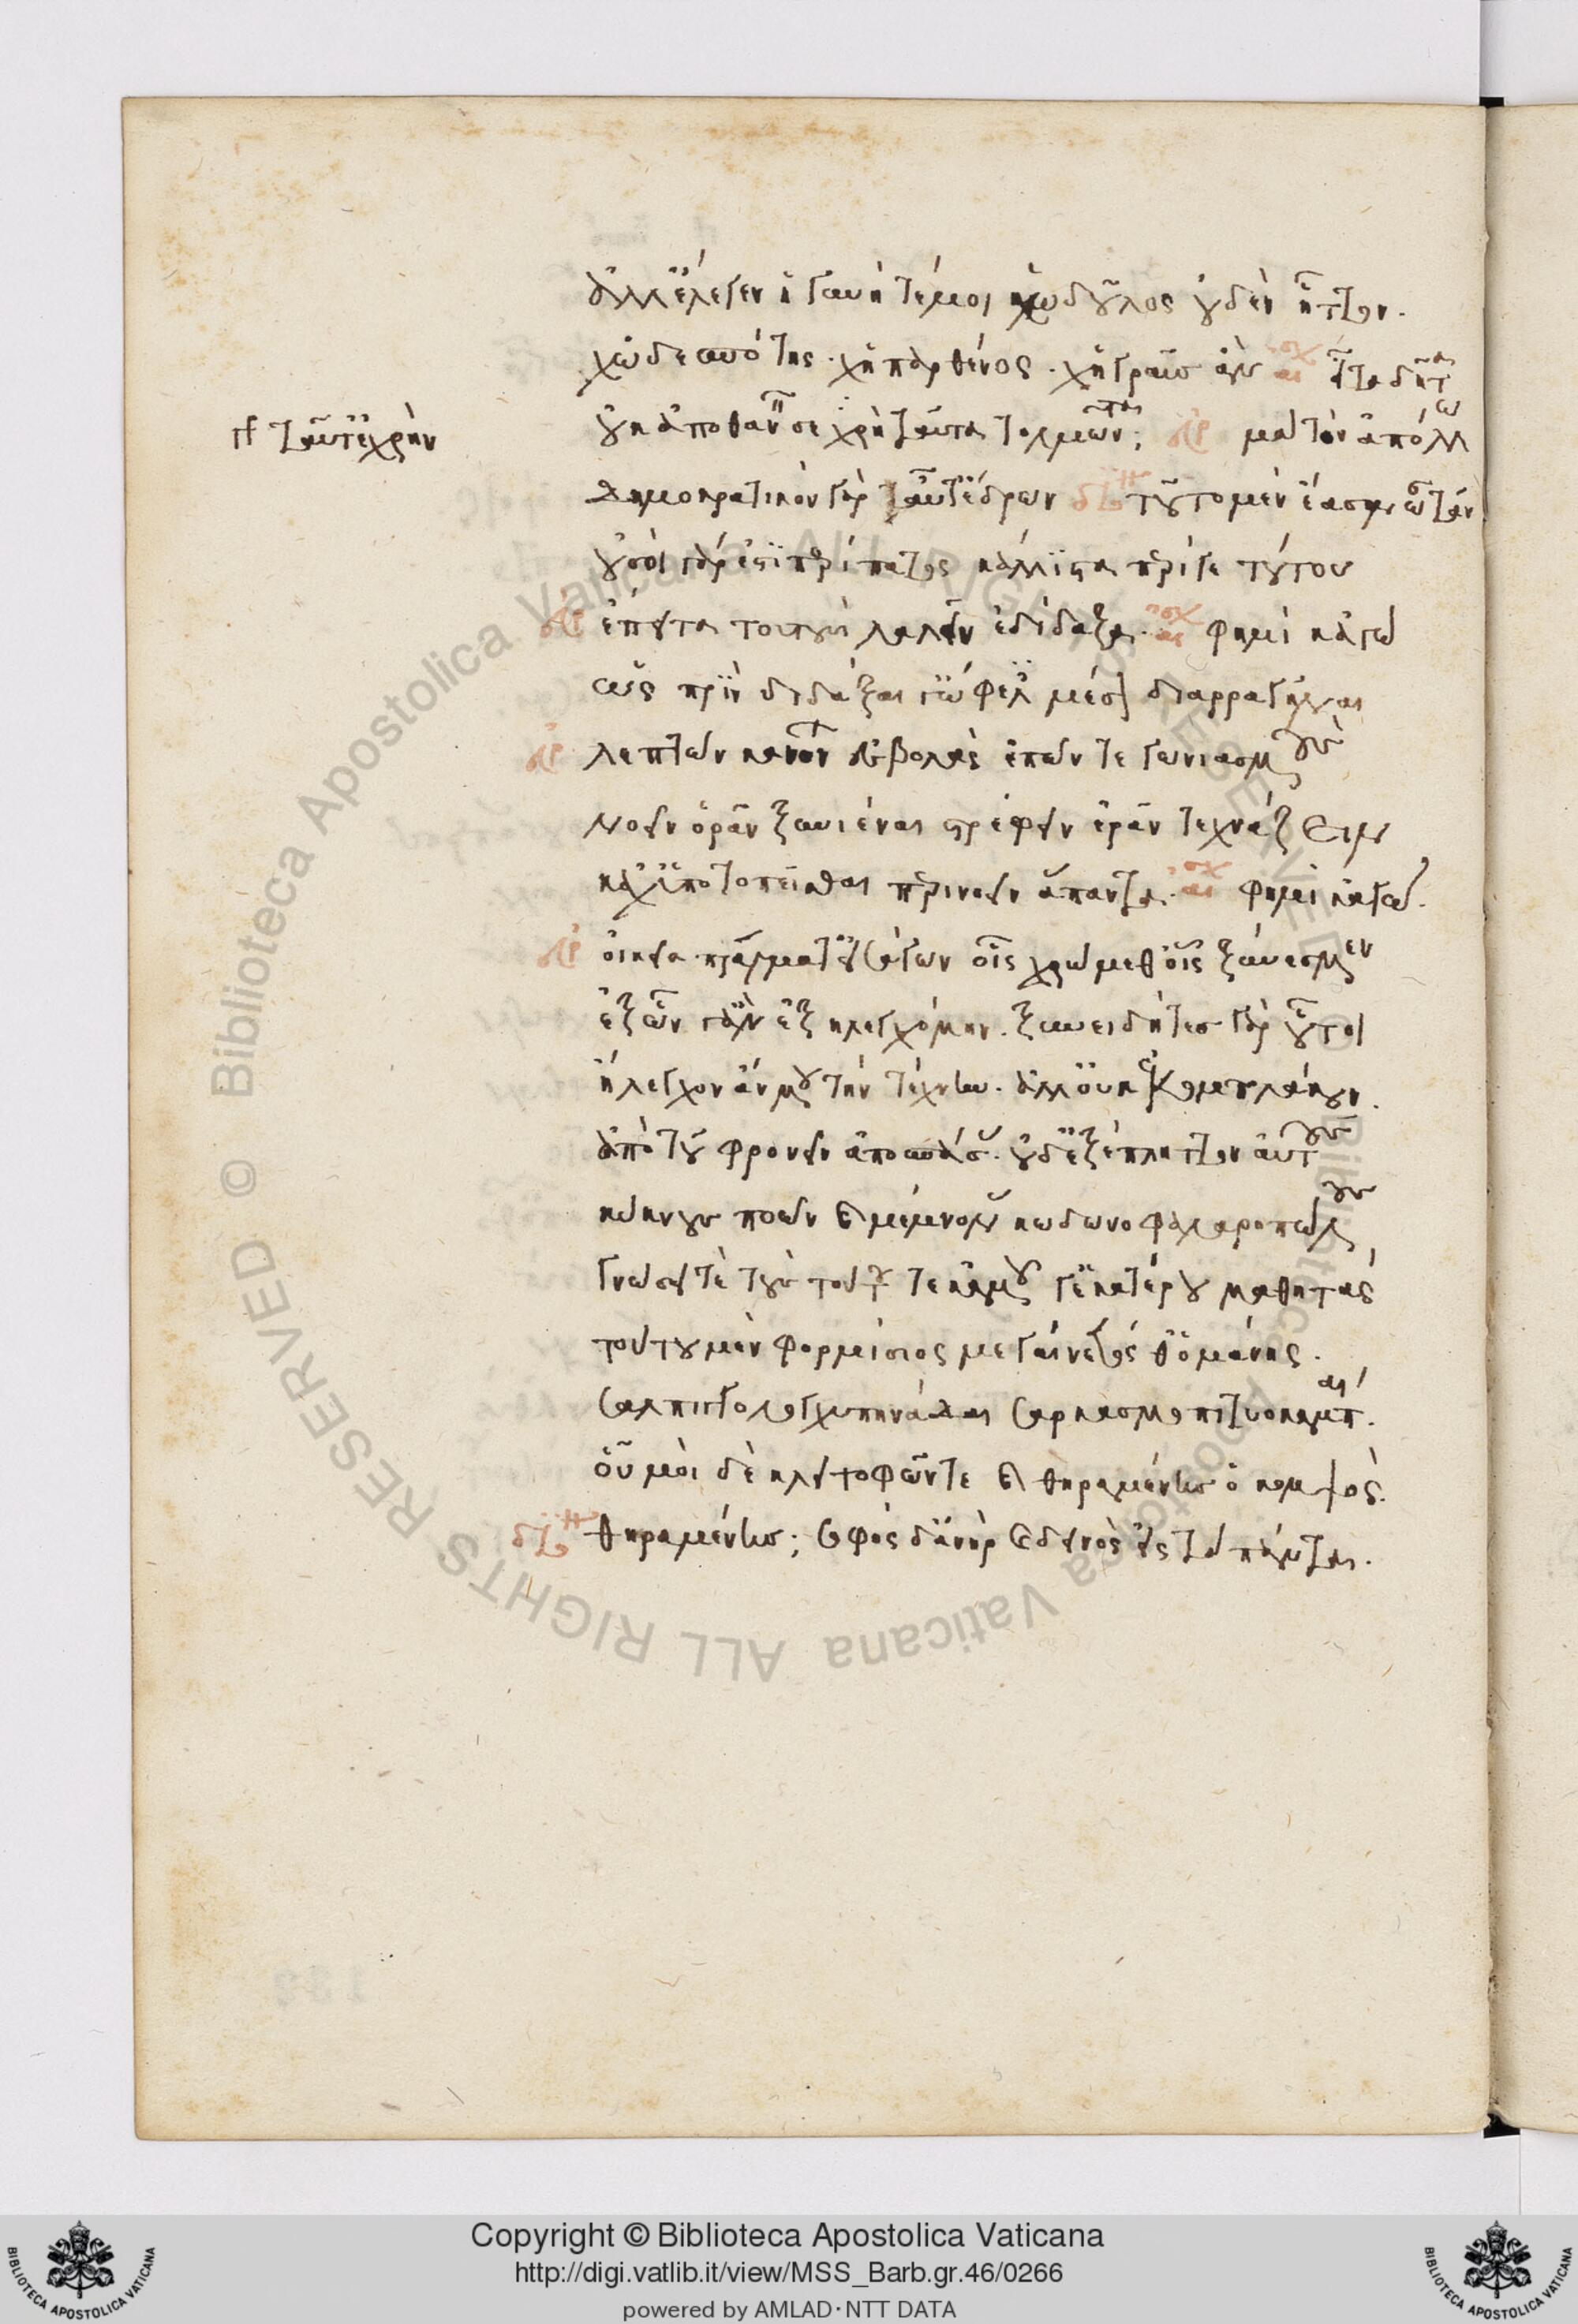 ἀλλ' ἔλεγεν ἡ γυνή τέ μοι χὠ δοῦλος οὐδὲν ἧττον.
χὠ δεσπότης. χἠ παρθένος. χἠ γραῦς ἂν αισχ εἶτα δῆτα
γρ ταῦτ' ἐχρῆν
οὐκ ἀποθανεῖν σε χρὴ ταῦτα τολμῶντα; ευρ μὰ τὸν ἀπόλλω
δημοκρατικὸν γὰρ ταῦτ' ἔδρων διον τοῦτο μὲν ἔασον ὦ τάν
οὐ σοὶ γάρ ἐστι περίπατος κάλλιστα περί γε τούτου
ευρ ἔπειτα τουτουσὶ λαλεῖν ἐδίδαξα. αισχ φημὶ κἀγώ
ὡς πρὶν διδάξαι γ' ὤφελες μέσος διαρραγῆναι
ευρ λεπτῶν κανόνων εἰσβολὰς ἐπῶν τε γωνιασμούς
νοεῖν ὁρᾶν ξυνιέναι στρέφειν ἐρᾶν τεχνάζειν
κἀχ' ὑποτοπεῖσθαι περινοεῖν ἅπαντα. αισχ φημὶ κἀγώ.
ευρ οἰκεῖα πράγματ' εἰσάγων οἷς χρώμεθ' οἷς ξύνεσμεν
ἐξ ὧν γ' ἂν ἐξηλεγχόμην. ξυνειδότες γὰρ οὗτοι
ἤλεγχον ἄν μου τὴν τέχνην. ἀλλ' οὐκ ἐκομπολάκουν.
ἀπὸ τοῦ φρονεῖν ἀποσπάσας. οὐδ' ἐξέπληττον αὐτούς
κύκνους ποιῶν καὶ μέμνονας κωδωνοφαλαροπώλους
γνώσει δὲ τοὺς τούτου τε κἀμοῦ γ' ἑκατέρου μαθητάς
τουτουμὲν φορμίσιος μεγαίνετός θ' ὁ μάνης.
σαλπιγγολογχυπηνάδαι σαρκασμοπιτυοκάμπται.
οὑμοὶ δὲ κλειτοφῶν τε καὶ θηραμένης ὁ κομψός.
διον θηραμένης; σοφός γ' ἀνὴρ καὶ δεινὸς εἰς τὰ πάντα.
Copyright © Biblioteca Apostolica Vaticana
http://digi.vatlib.it/view/MSS_Barb.gr.46/0266
powered by AMLAD·NTT DATA